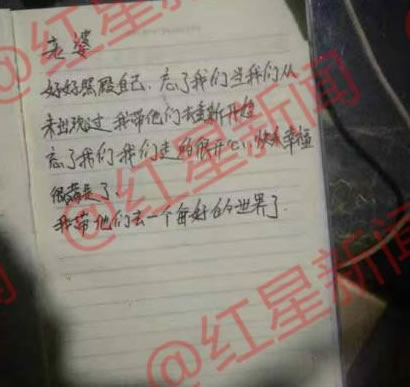 老婆
好好照顾自己，忘了我们当我们从
未出现过 我带他们去重新开始
忘了我们 我们走的很开心、快乐幸福
我带他们去一个每好的世界了.
@红星新闻
@红星新闻
@红星新闻